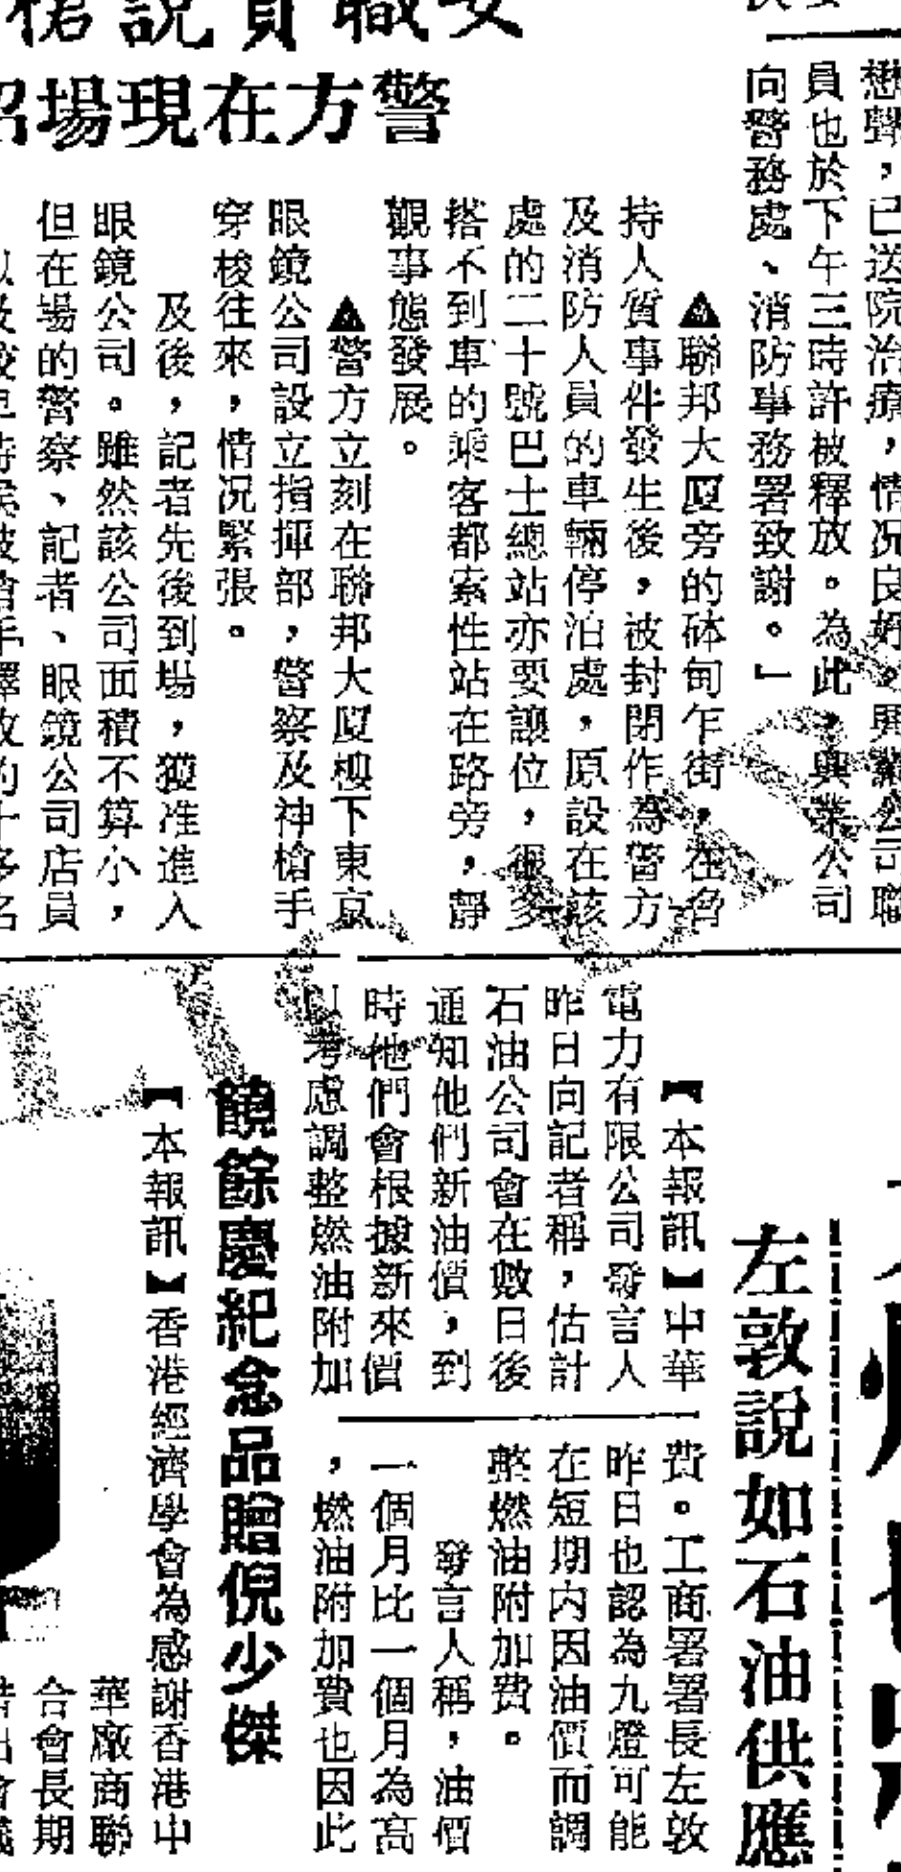 職員說
警方在現場
懋聲，已送院治療，情况良好。興業公司職
員也於下午三時許被釋放。為此，興業公司
向警務處、消防事務署致謝。」
▲聯邦大厦旁的砵甸乍街，在
持人質事件發生後，被封閉作為警方
及消防人員的車輛停泊處，原設在該
處的二十號巴士總站亦要讓位，很多
搭不到車的乘客都索性站在路旁，靜
觀事態發展。
▲警方立刻在聯邦大厦樓下東京
眼鏡公司設立指揮部，警察及神槍手
穿梭往來，情况緊張。
及後，記者先後到場，獲准進入
眼鏡公司。雖然該公司面積不算小，
但在場的警察、記者、眼鏡公司店員
左敦說如石油供應
【本報訊】中華
電力有限公司發言人
昨日向記者稱，估計
石油公司會在數日後
通知他們新油價，到
時他們會根據新來價
以考慮調整燃油附加
費。工商署署長左敦
昨日也認為九燈可能
在短期内因油價而調
整燃油附加費。
發言人稱，油價
一個月比一個月為高
，燃油附加費也因此
饒餘慶紀念品贈倪少傑
【本報訊】香港經濟學會為感謝香港中
華廠商聯
合會長期